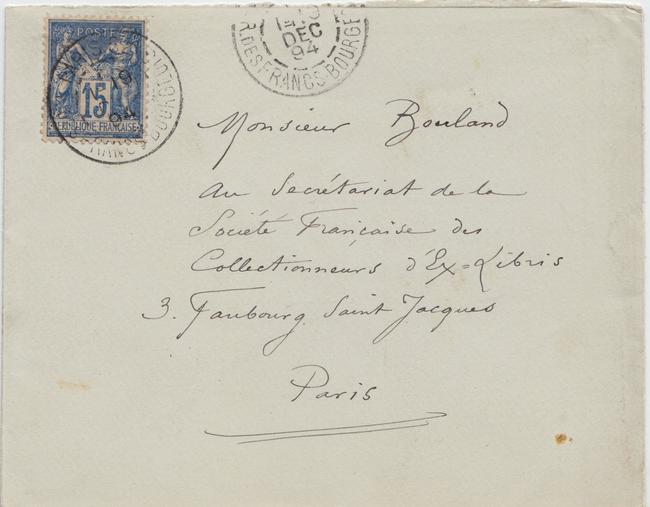 POSTES
15
REPUBLIQUE FRANCAISE
PARIS
19
94
19
DEC
94
R. DES FRANCS-BOURGE
Monsieur Bouland
Au Secrétariat de la
Société Française des
Collectionneurs d'Ex=Libris
3. Faubourg Saint Jacques
Paris